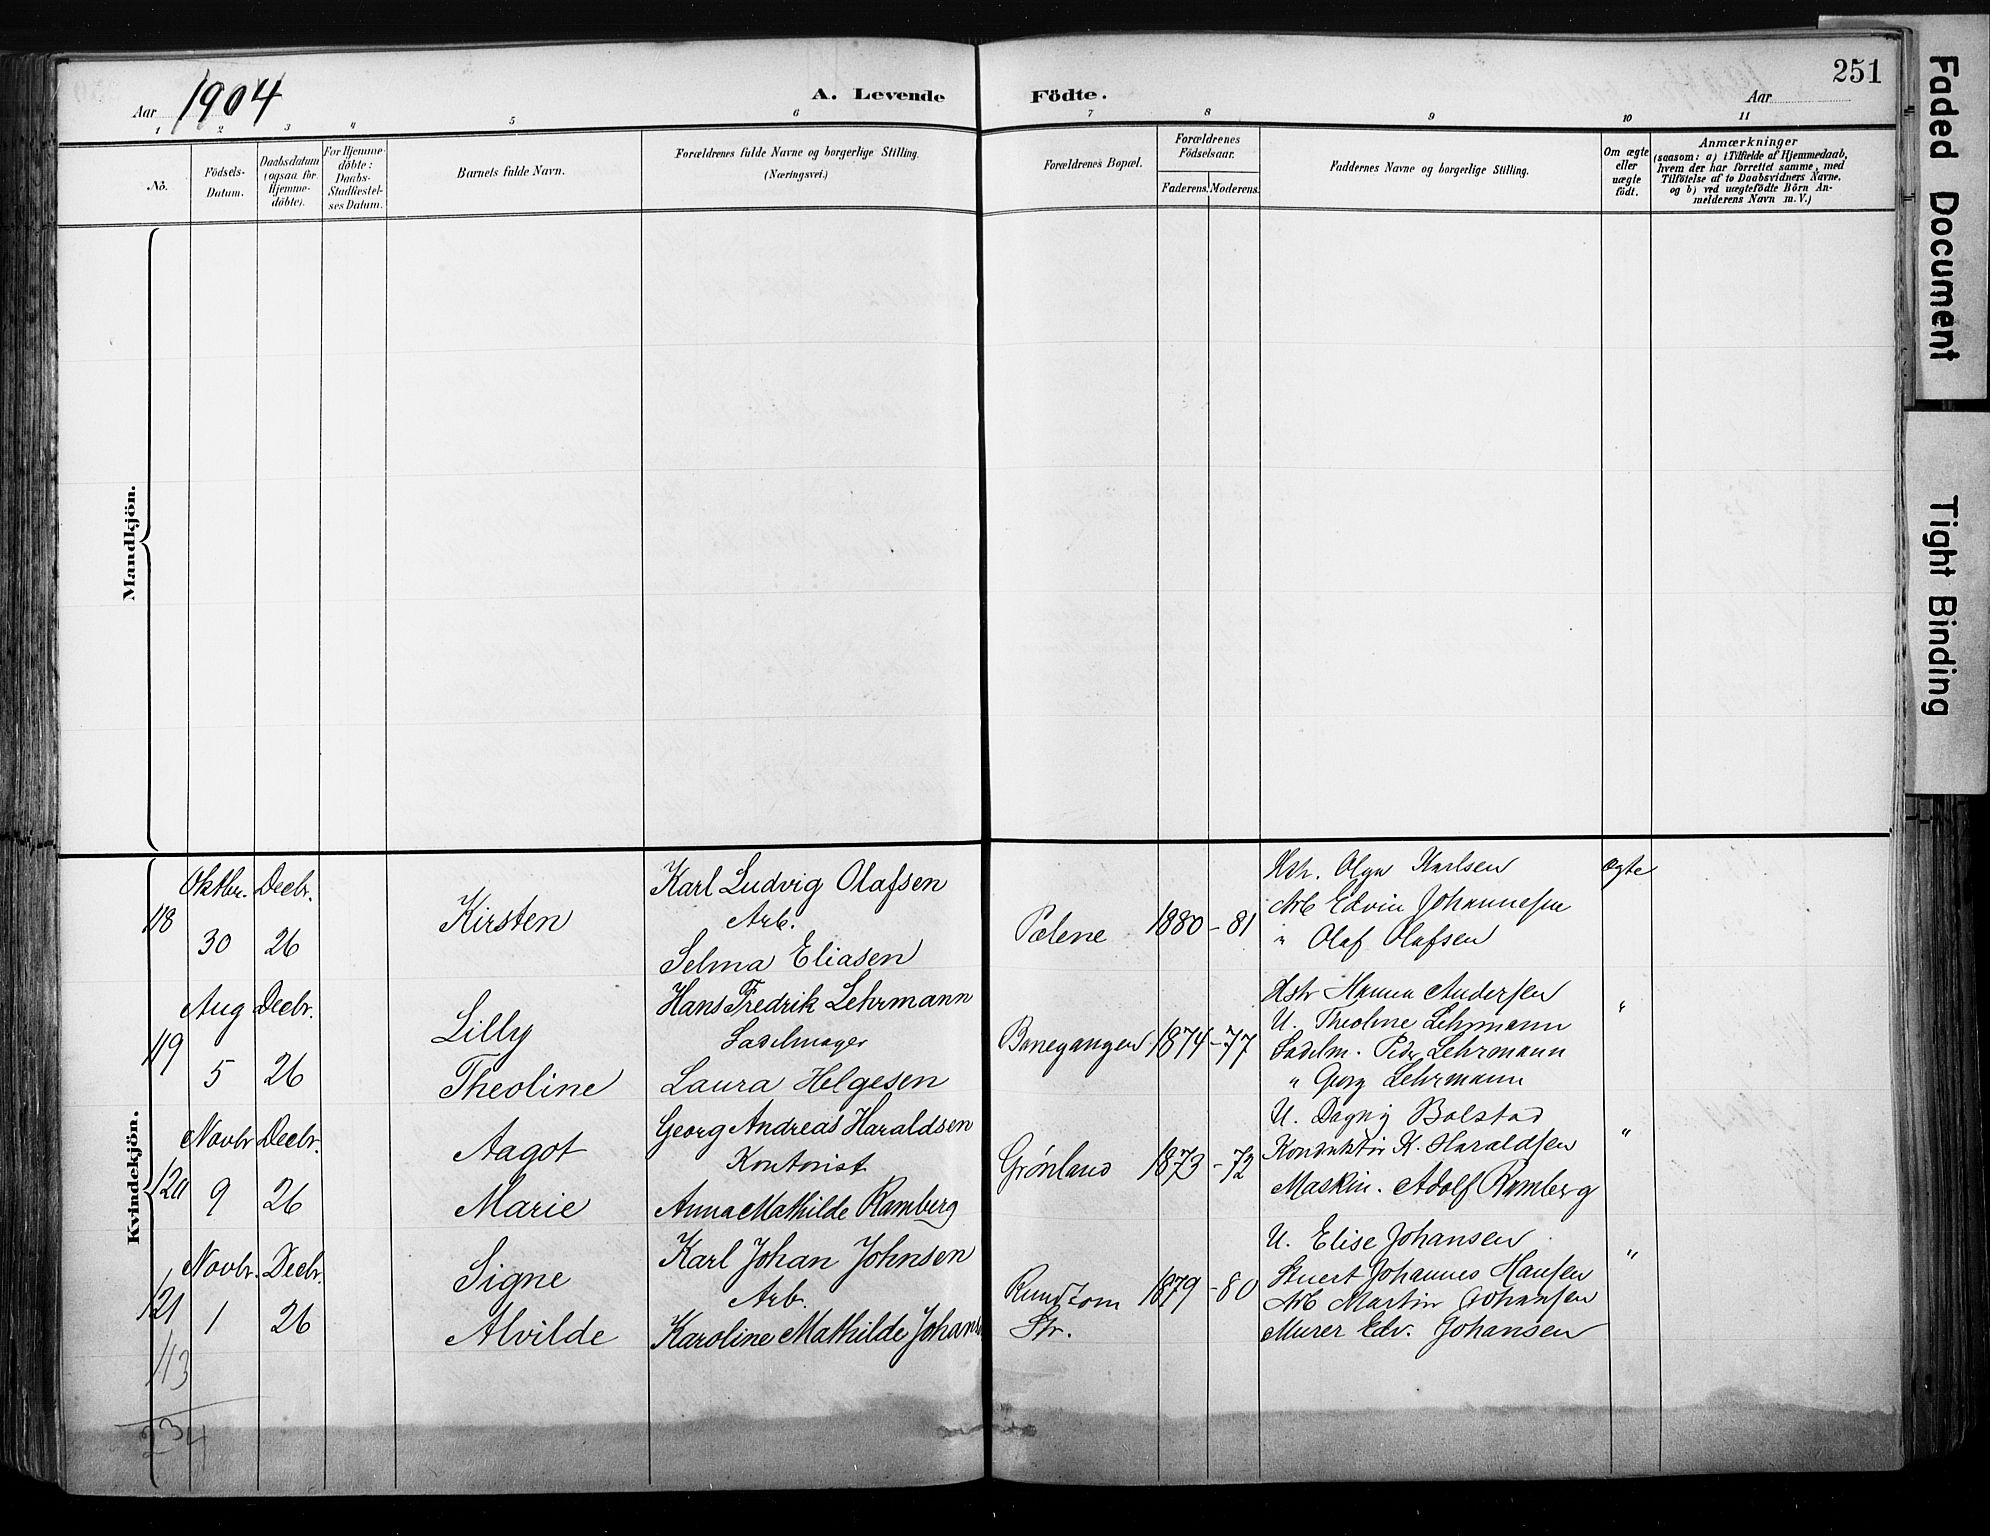 Aar 1904
A. Levende Födte.
Aar
251
1 2 3 4 5 6 7 8 9 10 11
No.
Födsels-Datum.
Daabsdatum (ogsaa for Hjemme-döbte).
For Hjemme-döbte: Daabs-Stadfæstel-ses Datum.
Barnets fulde Navn.
Forældrenes fulde Navne og borgerlige Stilling.
(Næringsvei.)
Forældrenes Bopæl.
Forældrenes Födselsaar.
Faderens. Moderens.
Faddernes Navne og borgerlige Stilling.
Om ægte eller uægte födt.
Anmærkninger
(saasom: a) i Tilfælde af Hjemmedaab,
hvem der har forrettet samme, med
Tilföielse af to Daabsvidners Navne.
og b) ved uægtefödte Börn An-
melderens Navn m. V.)
Mandkjön.
Kvindekjön.
118
Oktbr. 30
Decbr. 26
Kirsten
Karl Ludvig Olafsen
Arb.
Selma Eliasen
Pælene
1880 - 81
Hstr. Olga Karlsen
Arb Edvin Johannesen
" Olaf Olafsen
Ægte
119
Aug 5
Decbr. 26
Lilly
Theoline
Hans Fredrik Lehrmann
Sadelmager
Laura Helgesen
Banegangen
1874 - 77
Hstr Hanna Andersen
U. Theoline Lehrmann
Sadelm. Peder Lehrmann
" Georg Lehrmann
"
120
Novbr 9
Decbr. 26
Aagot
Marie
Georg Andreas Haraldsen
Kontorist
Anna Mathilde Ramberg
Grønland
1873 - 72
U. Dagny Bolstad
Konduktør K. Haraldsen
Maskin. Adolf Ramberg
"
121
Novbr. 1
Decbr. 26
Signe
Alvilde
Karl Johan Johnsen
Arb.
Karoline Mathilde Johans
Rundtom
Str.
1879 - 80
U. Elise Johansen
Stuert Johannes Hansen
Arb Martin Johansen
Murer Edv. Johansen
"
113
234
Faded Document
Tight Binding